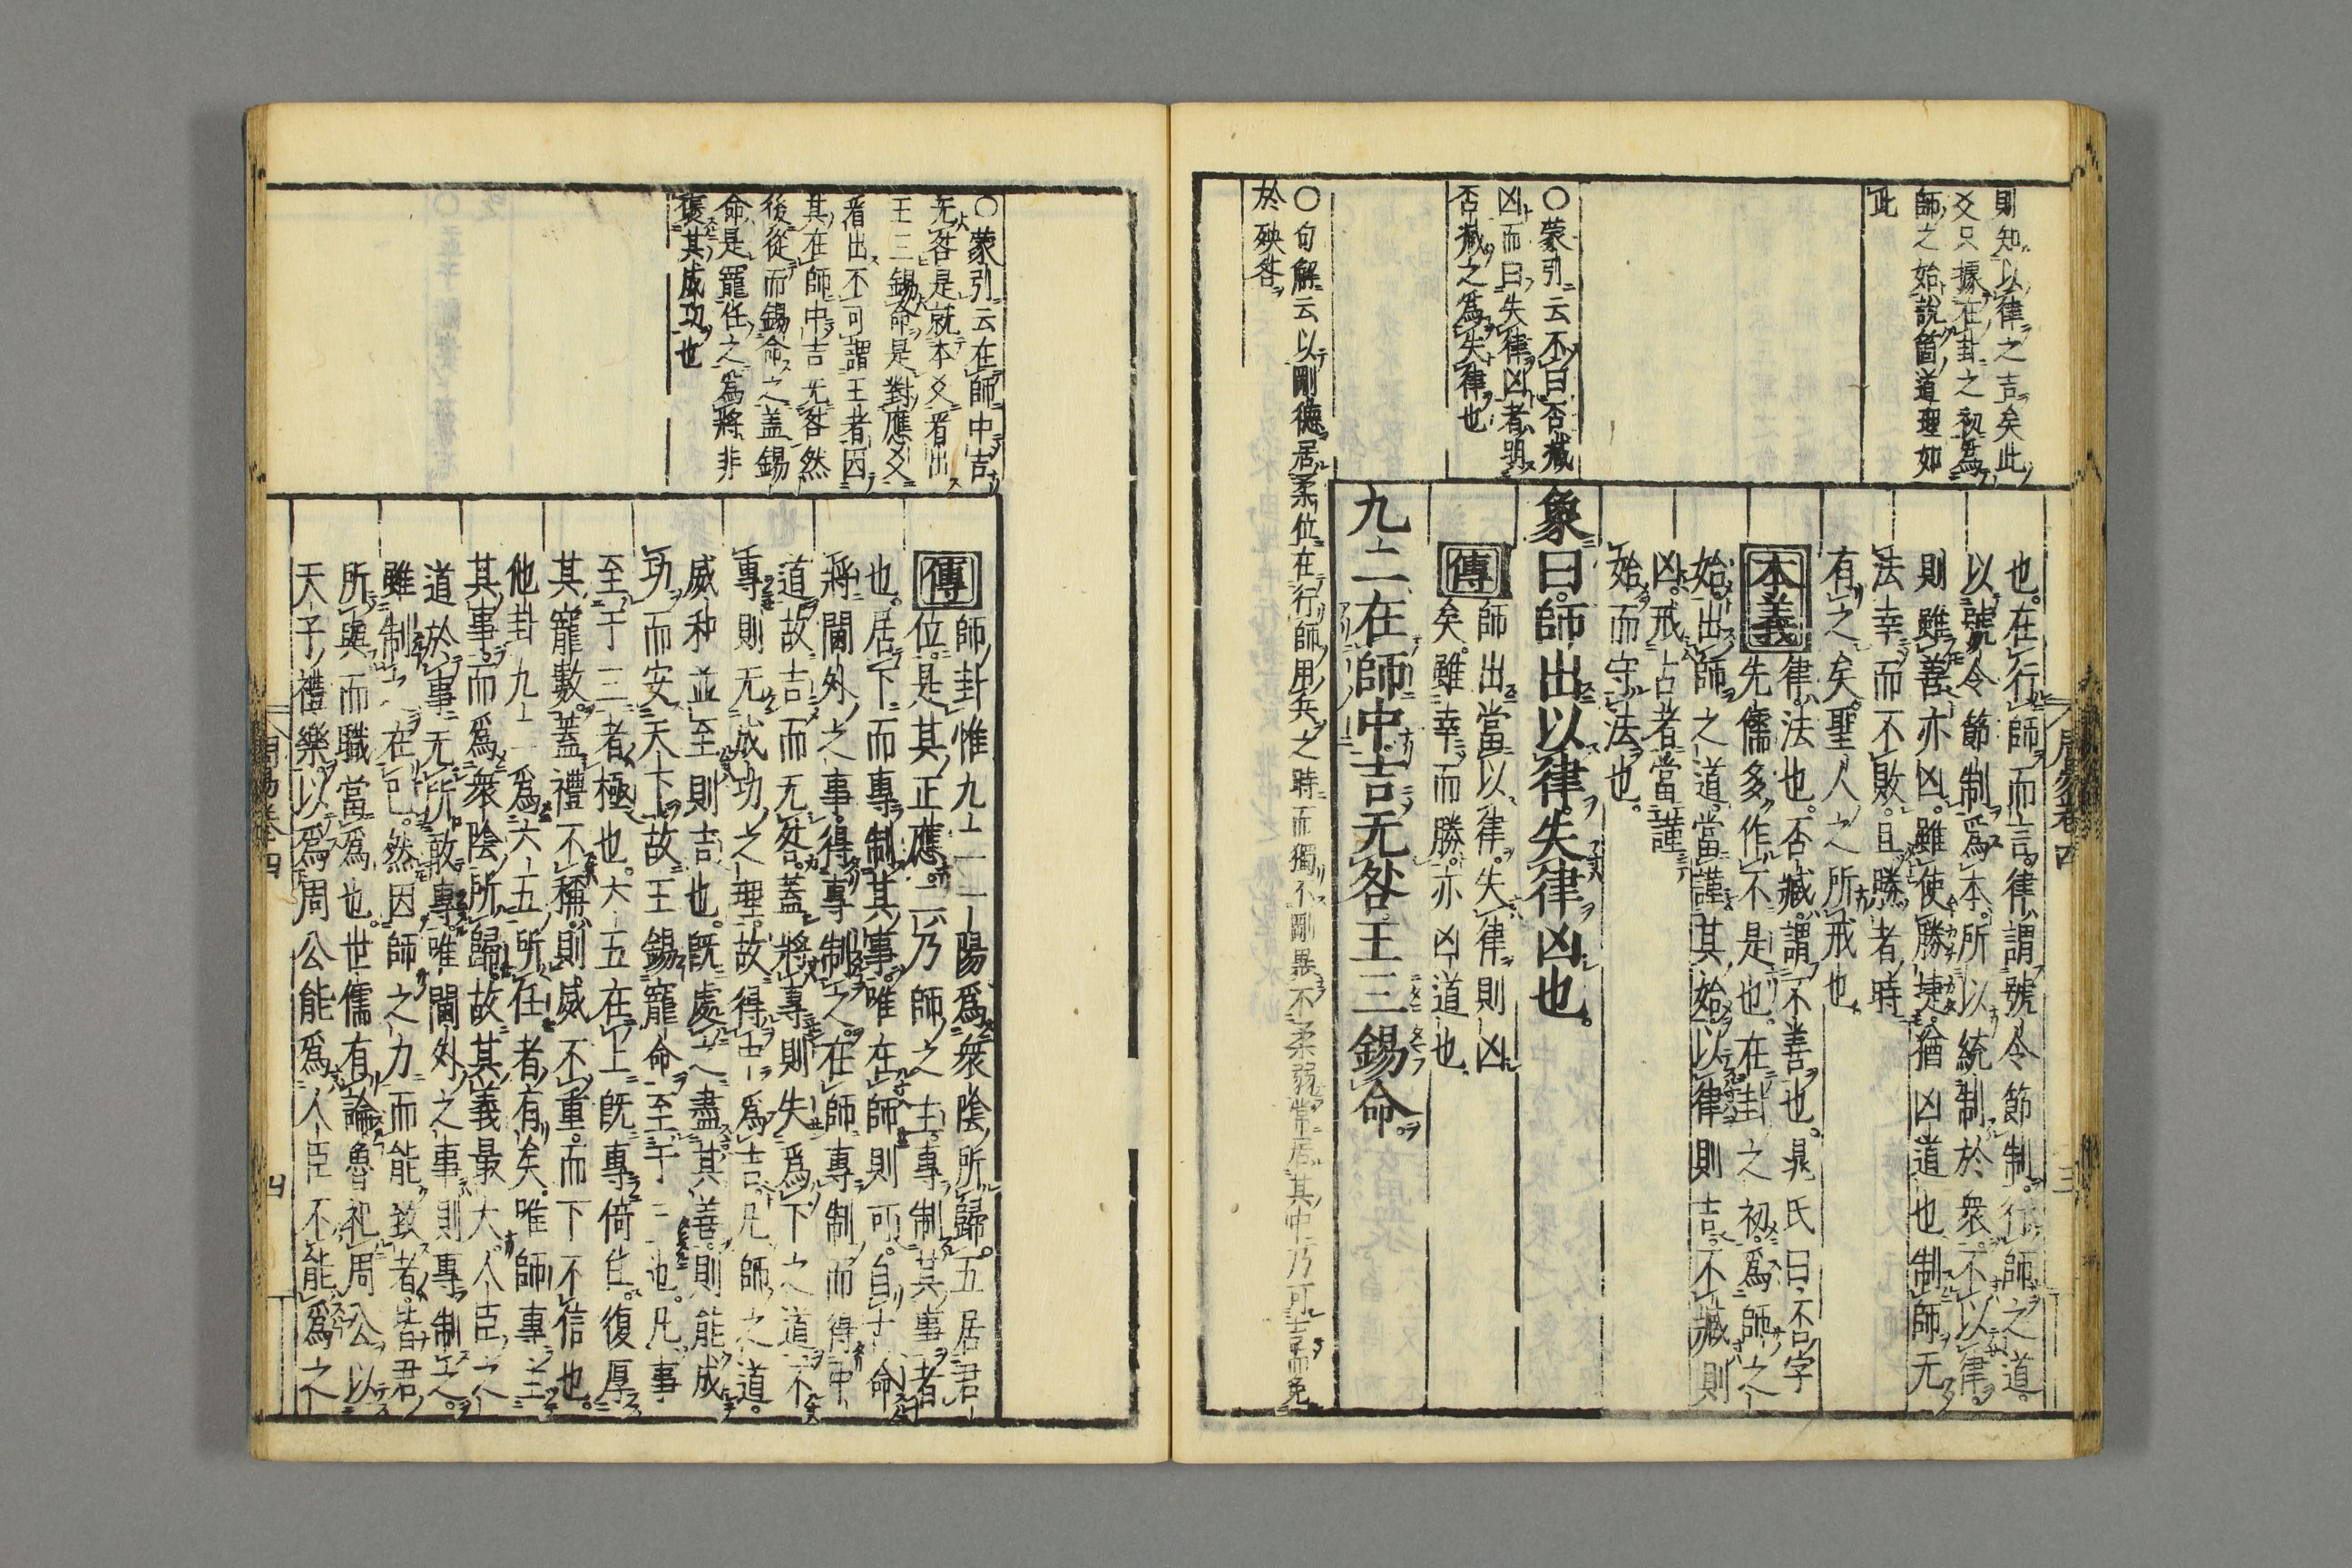 則知以律之吉矣此
爻只據在卦之初爲
師之始說箇道理如
此
〇蒙引云不曰否臧
凶而曰失律凶者明
否臧之爲失律也
〇句解云以剛德居柔位在行師用兵之時而獨不剛暴不柔弱常居其中乃可吉而免
於殃咎
周易卷四
三
也。在行師而言。律謂號令節制。行師之道。
以號令節制爲本。所以統制於衆。不以律。
則雖善亦凶。雖使勝捷。猶凶道也。制師无
法。幸而不敗。且勝者時
有之矣。聖人之所戒也。
本義
律。法也。否臧。謂不善也。晁氏曰。否字
先儒多作不是也。在卦之初。爲師之
始。出師之道。當謹其始。以律則吉。不臧則
凶。戒占者當謹
始而守法也。
象曰。師出以律。失律凶也。
傳
師出當以律。失律則凶
矣。雖幸而勝。亦凶道也。
九二在師中。吉无咎。王三錫命。
〇蒙引云在師中吉
无咎是就本爻看出
王三錫命是對應爻
看出不可謂王者因
其在師中吉无咎然
後從而錫命之蓋錫
命是寵任之爲將非
褒其成功也
傳
師卦惟九二一陽。爲衆陰所歸。五居君
位。是其正應。二乃師之主。專制其事者
也。居下而專制其事。唯在師則可。自古命
將。閫外之事。得專制之。在師專制。而得中
道。故吉而无咎。蓋將專則失爲下之道。不
專則无成功之理。故得中爲吉。凡師之道。
威和並至則吉也。旣處之盡其善。則能成
功而安天下。故王錫寵命至于三也。凡事
至于三者極也。六五在上。旣專倚任。復厚
其寵數。蓋禮不稱。則威不重。而下不信也。
他卦九二爲六五所任者有矣。唯師專主
其事。而爲衆陰所歸。故其義最大。人臣之
道。於事无所敢專。唯閫外之事。則專制之。
雖制之在己。然因師之力而能致者。皆君
所與而職當爲也。世儒有論魯祀周公以
天子禮樂。以爲周公能爲人臣不能爲之
周易卷四
四